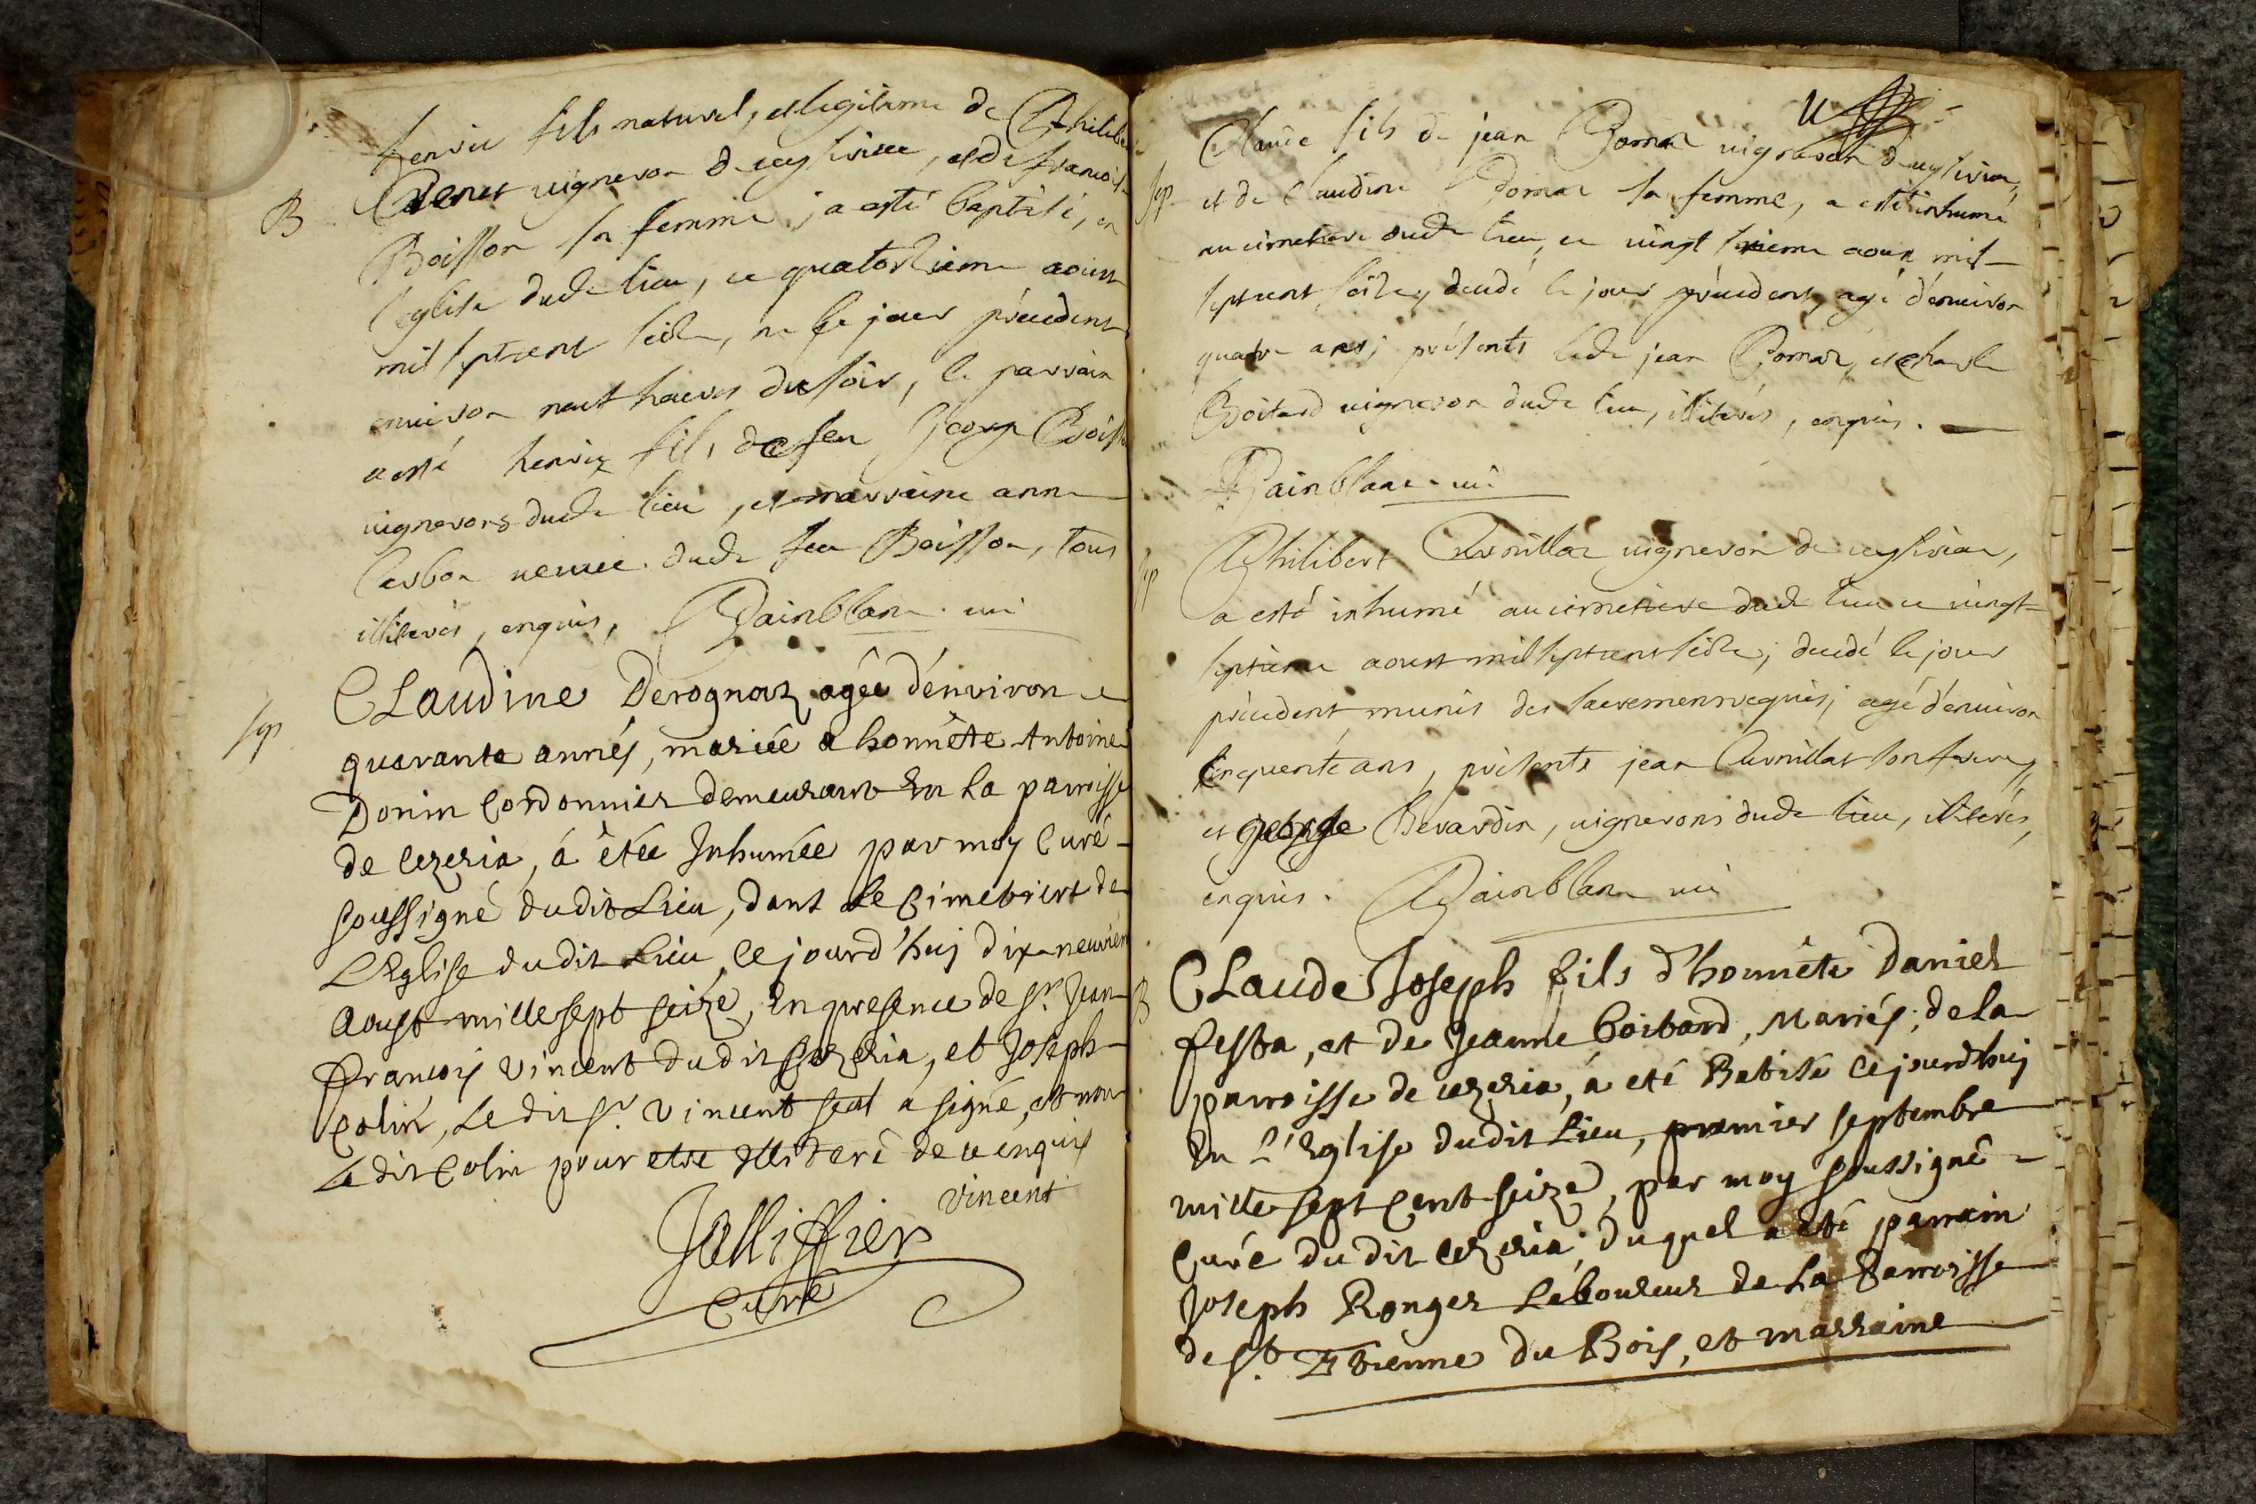 henrie fils naturel, et legitime de Philibe
vigneron de ceysiriat, et de francoise
B
Boisson sa femme, a esté baptisé, en
l'eglise dudt lieu, ce quatorzieme aoust
mil sept cent seize, ne le jour précédent
environ neuf heures du soir, le parrain
a esté henrix fils de feu George Boisso
vignerons dudt lieu, et marraine anne
Carbon veuve dudt feu Boisson, tous
illiterés, enquis, Painblanc
Sep
CLaudine Derognax agêe d'environ
quarante annés, mariée a honnête Antoine
Donin Cordonnier demeurant En La parroisse
de Cezeria, á êtée Inhumée par moy Curé
soussigné dudit Lieu, dans Le Cimetiere de
L'Eglise dudit Lieu, Ce jourd'huy dix neuviém
Aoust mille sept seize, En presence de sr. Jean
Francois Vincent dudit Cezeria, et Joseph
Colin, Le dit sr. Vincent seul á signé, et non
Le dit Colin pour etre Illiteré de ce enquis
Vincent
Jolliffier
Curé
11
Claude fils de jean Gomar vigneron de ceysiriat,
Sep
et de Claudine Gomar sa femme, a esté inhumé
au cimetiere dudt lieu, ce vingt sixieme aoust mil
sept cent seize, decedé le jour précédent, agé d'environ
quatre ans, présents ledt jean Gomar, et Charle
Boitard vigneron dudt lieu, illiterés, enquis.
Painblanc
Sep
Philibert Curnillat vigneron de ceysiriat,
a esté inhumé au cimetiere dudt lieu ce vingt
septieme aoust mil sept cent seize, decedé le jour
précédent, munis des sacremens requis, agé d'environ
cinquente ans, présents jean Curnillat son frere,
et George Berardin, vignerons dudt lieu, illiterés,
enquis. Painblanc
B
CLaude Joseph fils d'honnête Daniel
festa, et de Jeanne Coitard, Mariés, de La
parroisse de cezeria, á eté Batisé Ce jourd'huy
En L'Eglise dudit Lieu, premier septembre
mille sept Cent seize, par moy soussigné
Curé du dit cezeria, duquel a eté parrain
Joseph Ronger Laboureur de La Parroisse
de st. Etienne du Bois, et marraine